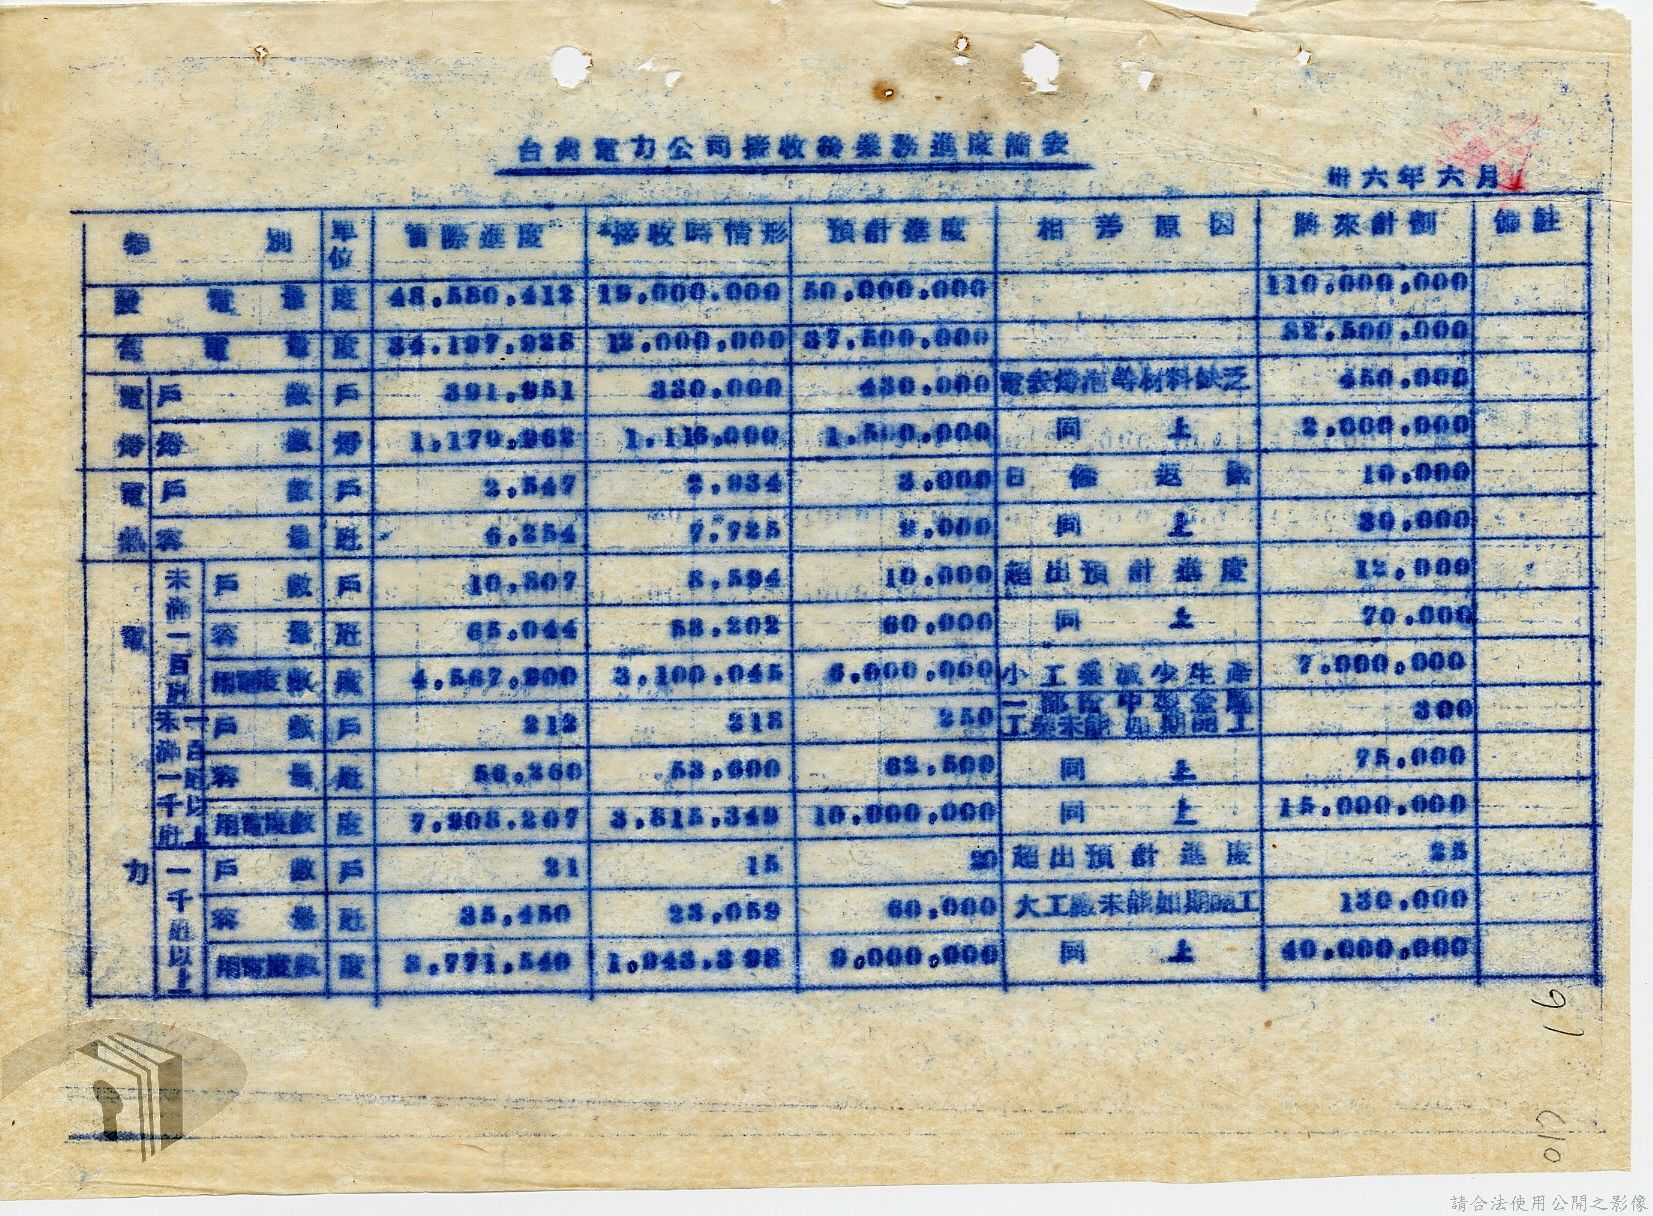 台灣電力公司接收後業務進度簡表
卅六年六月
類別 單位 實際進度 接收時情形 預計進度 相差原因 將來計劃 備註
發電量 度 48,550,412 19,000,000 50,000,000 110,000,000
售電量 度 34,197,928 12,000,000 37,500,000 82,500,000
電燈 戶數 戶 391,951 330,000 430,000 電表燈泡等材料缺乏 450,000
燈數 燈 1,179,962 1,116,000 1,500,000 同上 2,000,000
電熱 戶數 戶 2,547 2,934 3,000 日僑返國 10,000
容量 瓩 6,254 7,725 9,000 同上 30,000
電力 未滿一百瓩 戶數 戶 10,807 8,594 10,000 超出預計進度 12,000
容量 瓩 65,044 58,202 60,000 同上 70,000
用電度數 度 4,567,900 3,100,045 6,000,000 小工業減少生產 7,000,000
一百瓩以上未滿一千瓩 戶數 戶 212 218 250 一部份中型金屬工業未能如期開工 300
容量 瓩 56,260 53,600 62,500 同上 75,000
用電度數 度 7,908,207 3,815,349 10,000,000 同上 15,000,000
一千瓩以上 戶數 戶 21 15 20 超出預計進度 25
容量 瓩 35,450 23,059 60,000 大工廠未能如期開工 130,000
用電度數 度 8,771,540 1,943,398 9,000,000 同上 40,000,000
16
017
請合法使用公開之影像